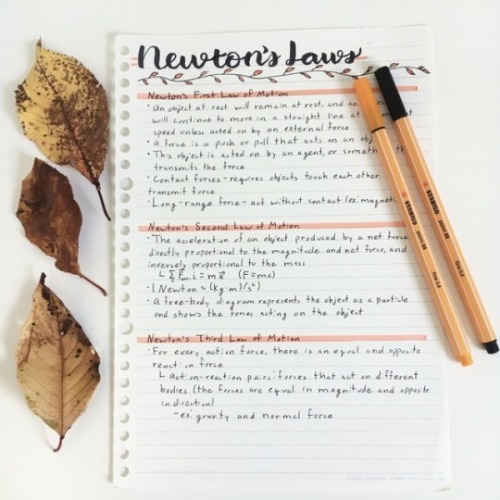 Newton's Laws
Newton's First Law of Motion
• An object at rest will remain at rest, and an
will continue to move in a straight line at
speed unless acted on by an external force
• A force is a push or pull that acts on an
• This object is acted on by an agent, or
transmits the force
• Contact forces - requires objects touch each other
transmit force
• Long-range force - act without contact (ex. magnet
Newton's Second Law of Motion
• The acceleration of an object produced by a net force
directly proportional to the magnitude and net force, and
inversely proportional to the mass
(F=ma)
• 1 Newton = (kg·m)/s²)
• A free-body diagram represents the object as a particle
and shows the forces acting on the object
Newton's Third Law of Motion
• For every action force, there is an equal and opposite
reaction force
L action-reaction pairs: forces that act on different
bodies (the forces are equal in magnitude and opposite
in direction)
- ex: gravity and normal force
STABILO
STABILO